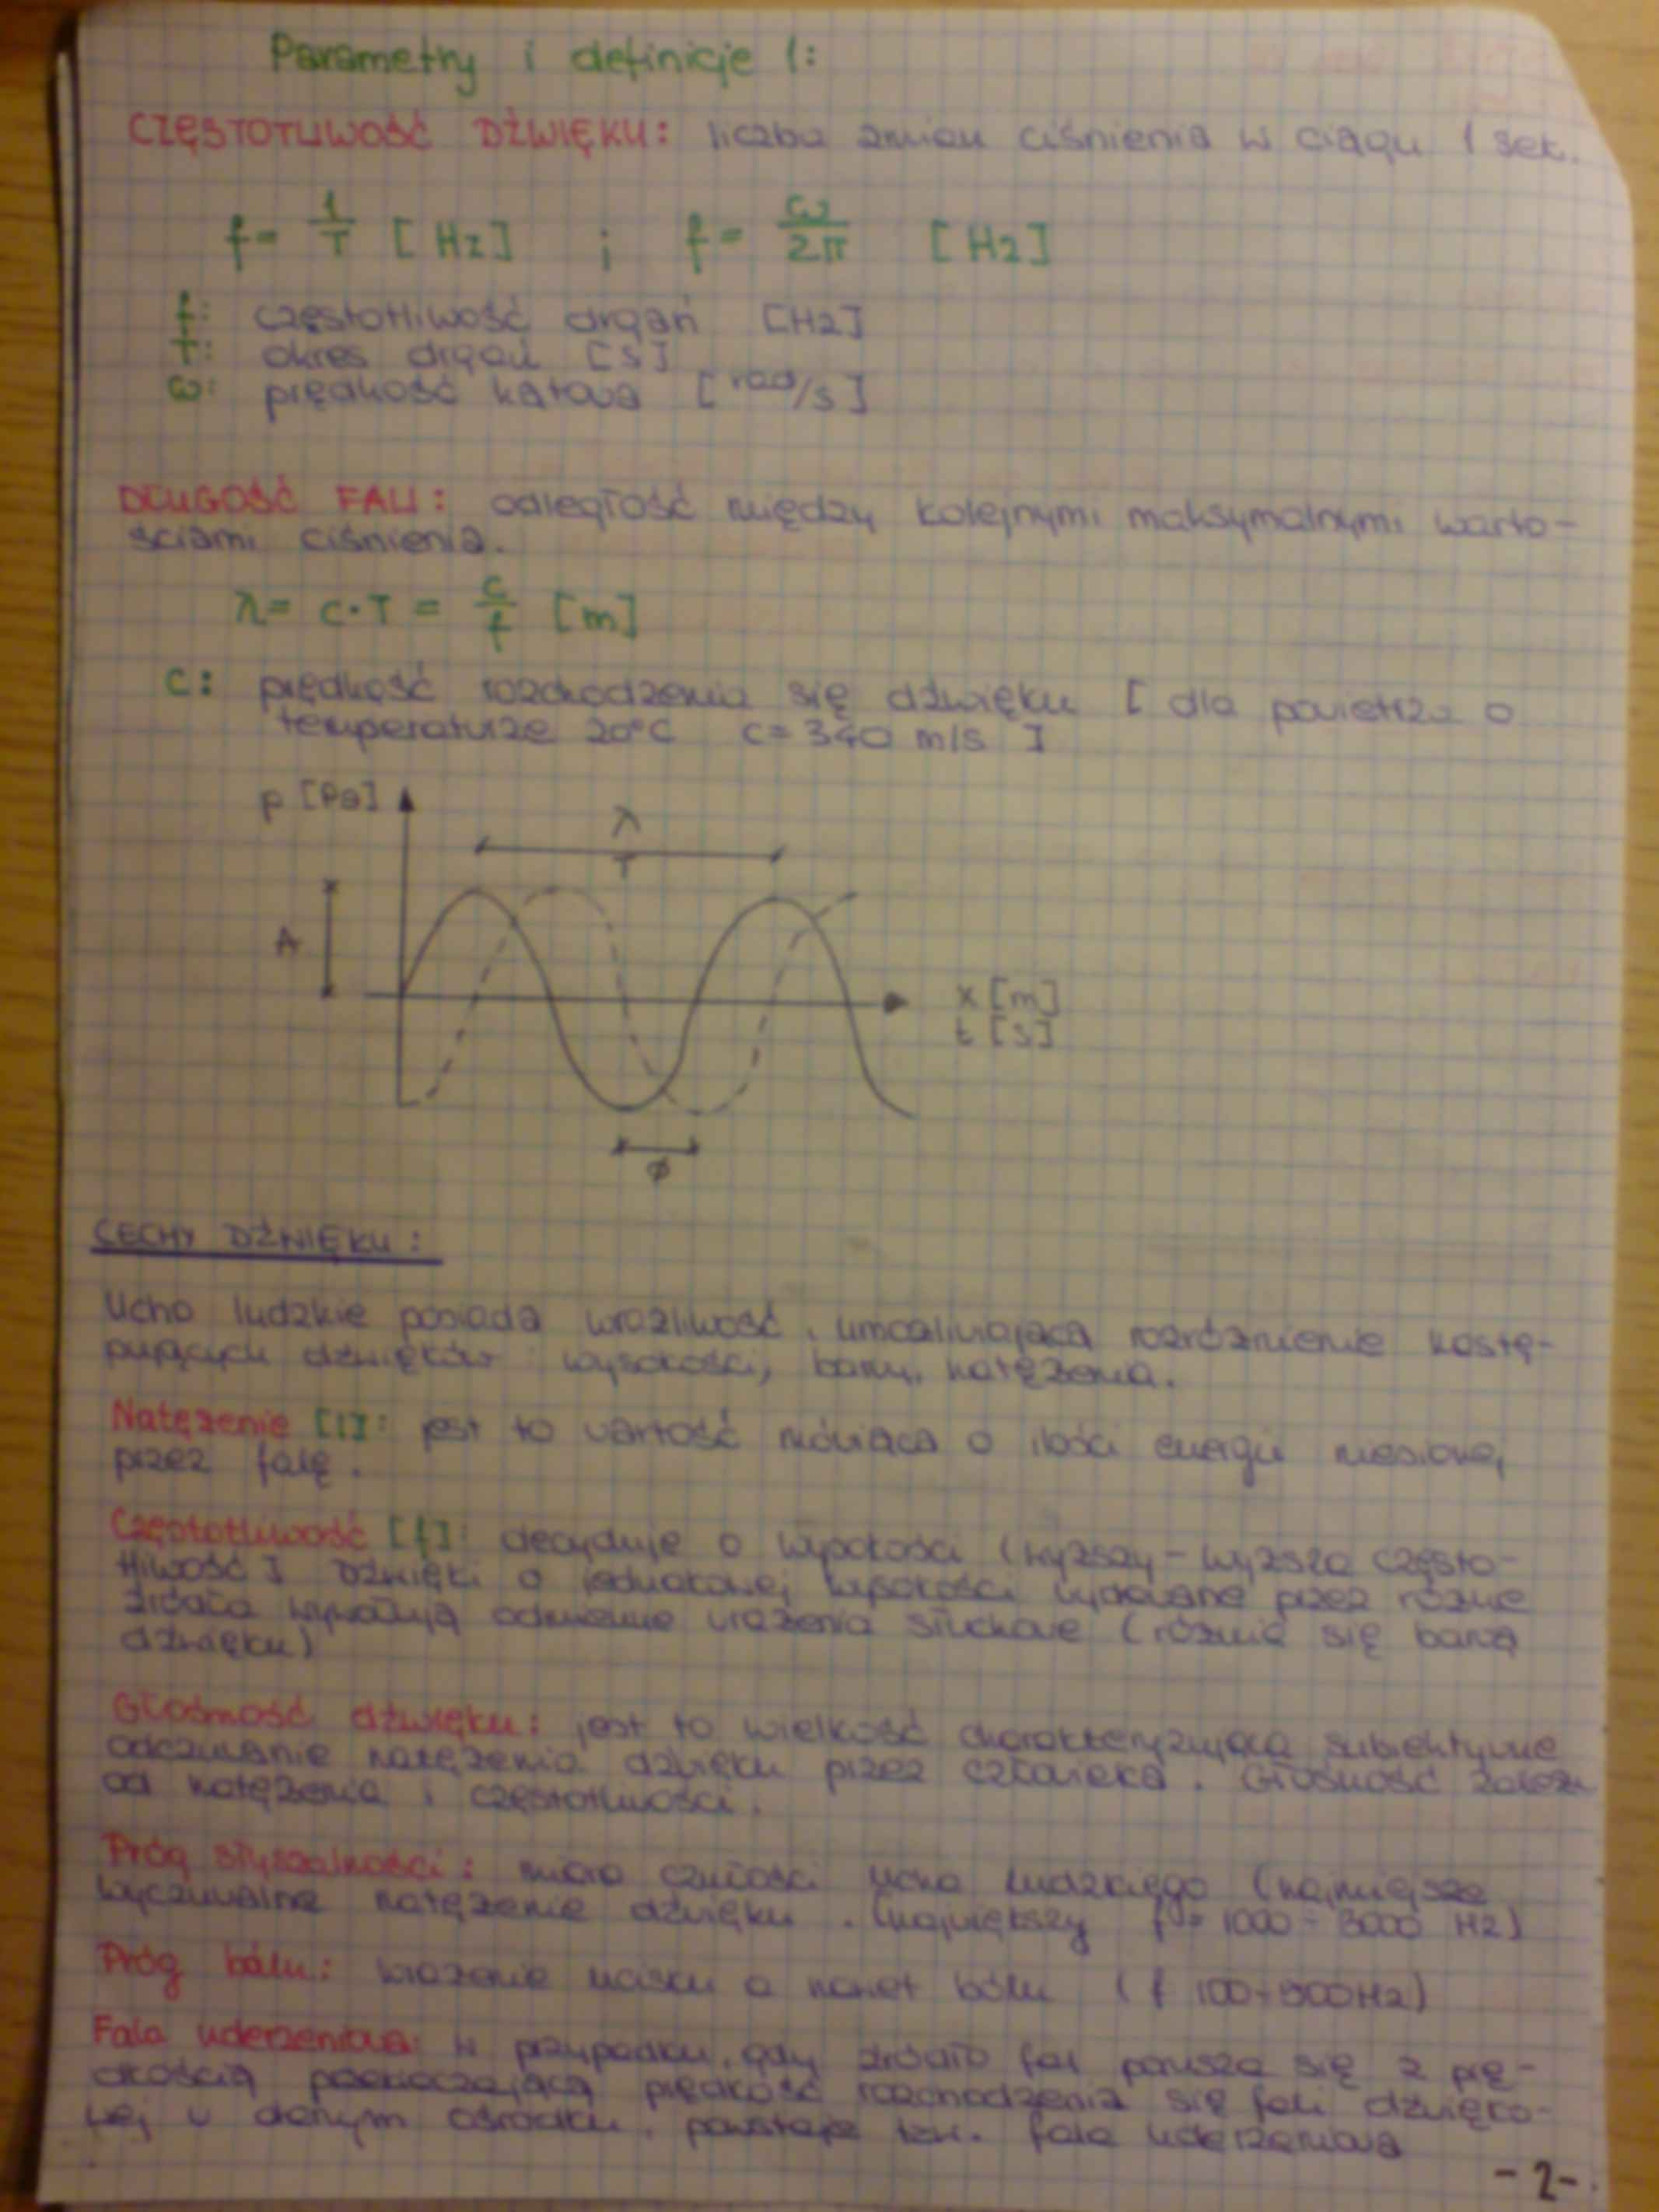 Parametry i definicje 1:
CZĘSTOTLIWOŚĆ DŹWIĘKU: liczba zmian ciśnienia w ciągu 1 sek.
f = 1/T [Hz] ; f = ω/2π [Hz]
f: częstotliwość drgań [Hz]
T: okres drgań [s]
ω: prędkość kątowa [rad/s]
DŁUGOŚĆ FALI: odległość między kolejnymi maksymalnymi warto-
ściami ciśnienia.
λ = c·T = c/f [m]
c: prędkość rozchodzenia się dźwięku [dla powietrza o
temperaturze 20°C c = 340 m/s ]
p [Pa]
λ
T
A
x [m]
t [s]
φ
CECHY DŹWIĘKU:
Ucho ludzkie posiada wrażliwość, umożliwiającą rozróżnienie nastę-
pujących dźwięków: wysokości, barwy, natężenia.
Natężenie [I]: jest to wartość mówiąca o ilości energii niesionej
przez falę.
Częstotliwość [f]: decyduje o wysokości (wyższy - wyższa często-
tliwość] Dźwięki o jednakowej wysokości wydawane przez różne
źródła wywołują odmienne wrażenia słuchowe (różnią się barwą
dźwięku)
Głośność dźwięku: jest to wielkość charakteryzująca subiektywne
odczuwanie natężenia dźwięku przez człowieka. Głośność zależy
od natężenia i częstotliwości.
Próg słyszalności: miara czułości ucha ludzkiego (najmniejsze
wyczuwalne natężenie dźwięku. (największy f = 1000 ÷ 3000 Hz)
Próg bólu: wrażenie ucisku a nawet bólu (f 100÷500Hz)
Fala uderzeniowa: w przypadku, gdy źródło fal porusza się z prę-
dkością przekraczającą prędkość rozchodzenia się fali dźwięko-
wej w danym ośrodku, powstaje tzw. fala uderzeniowa
-2-